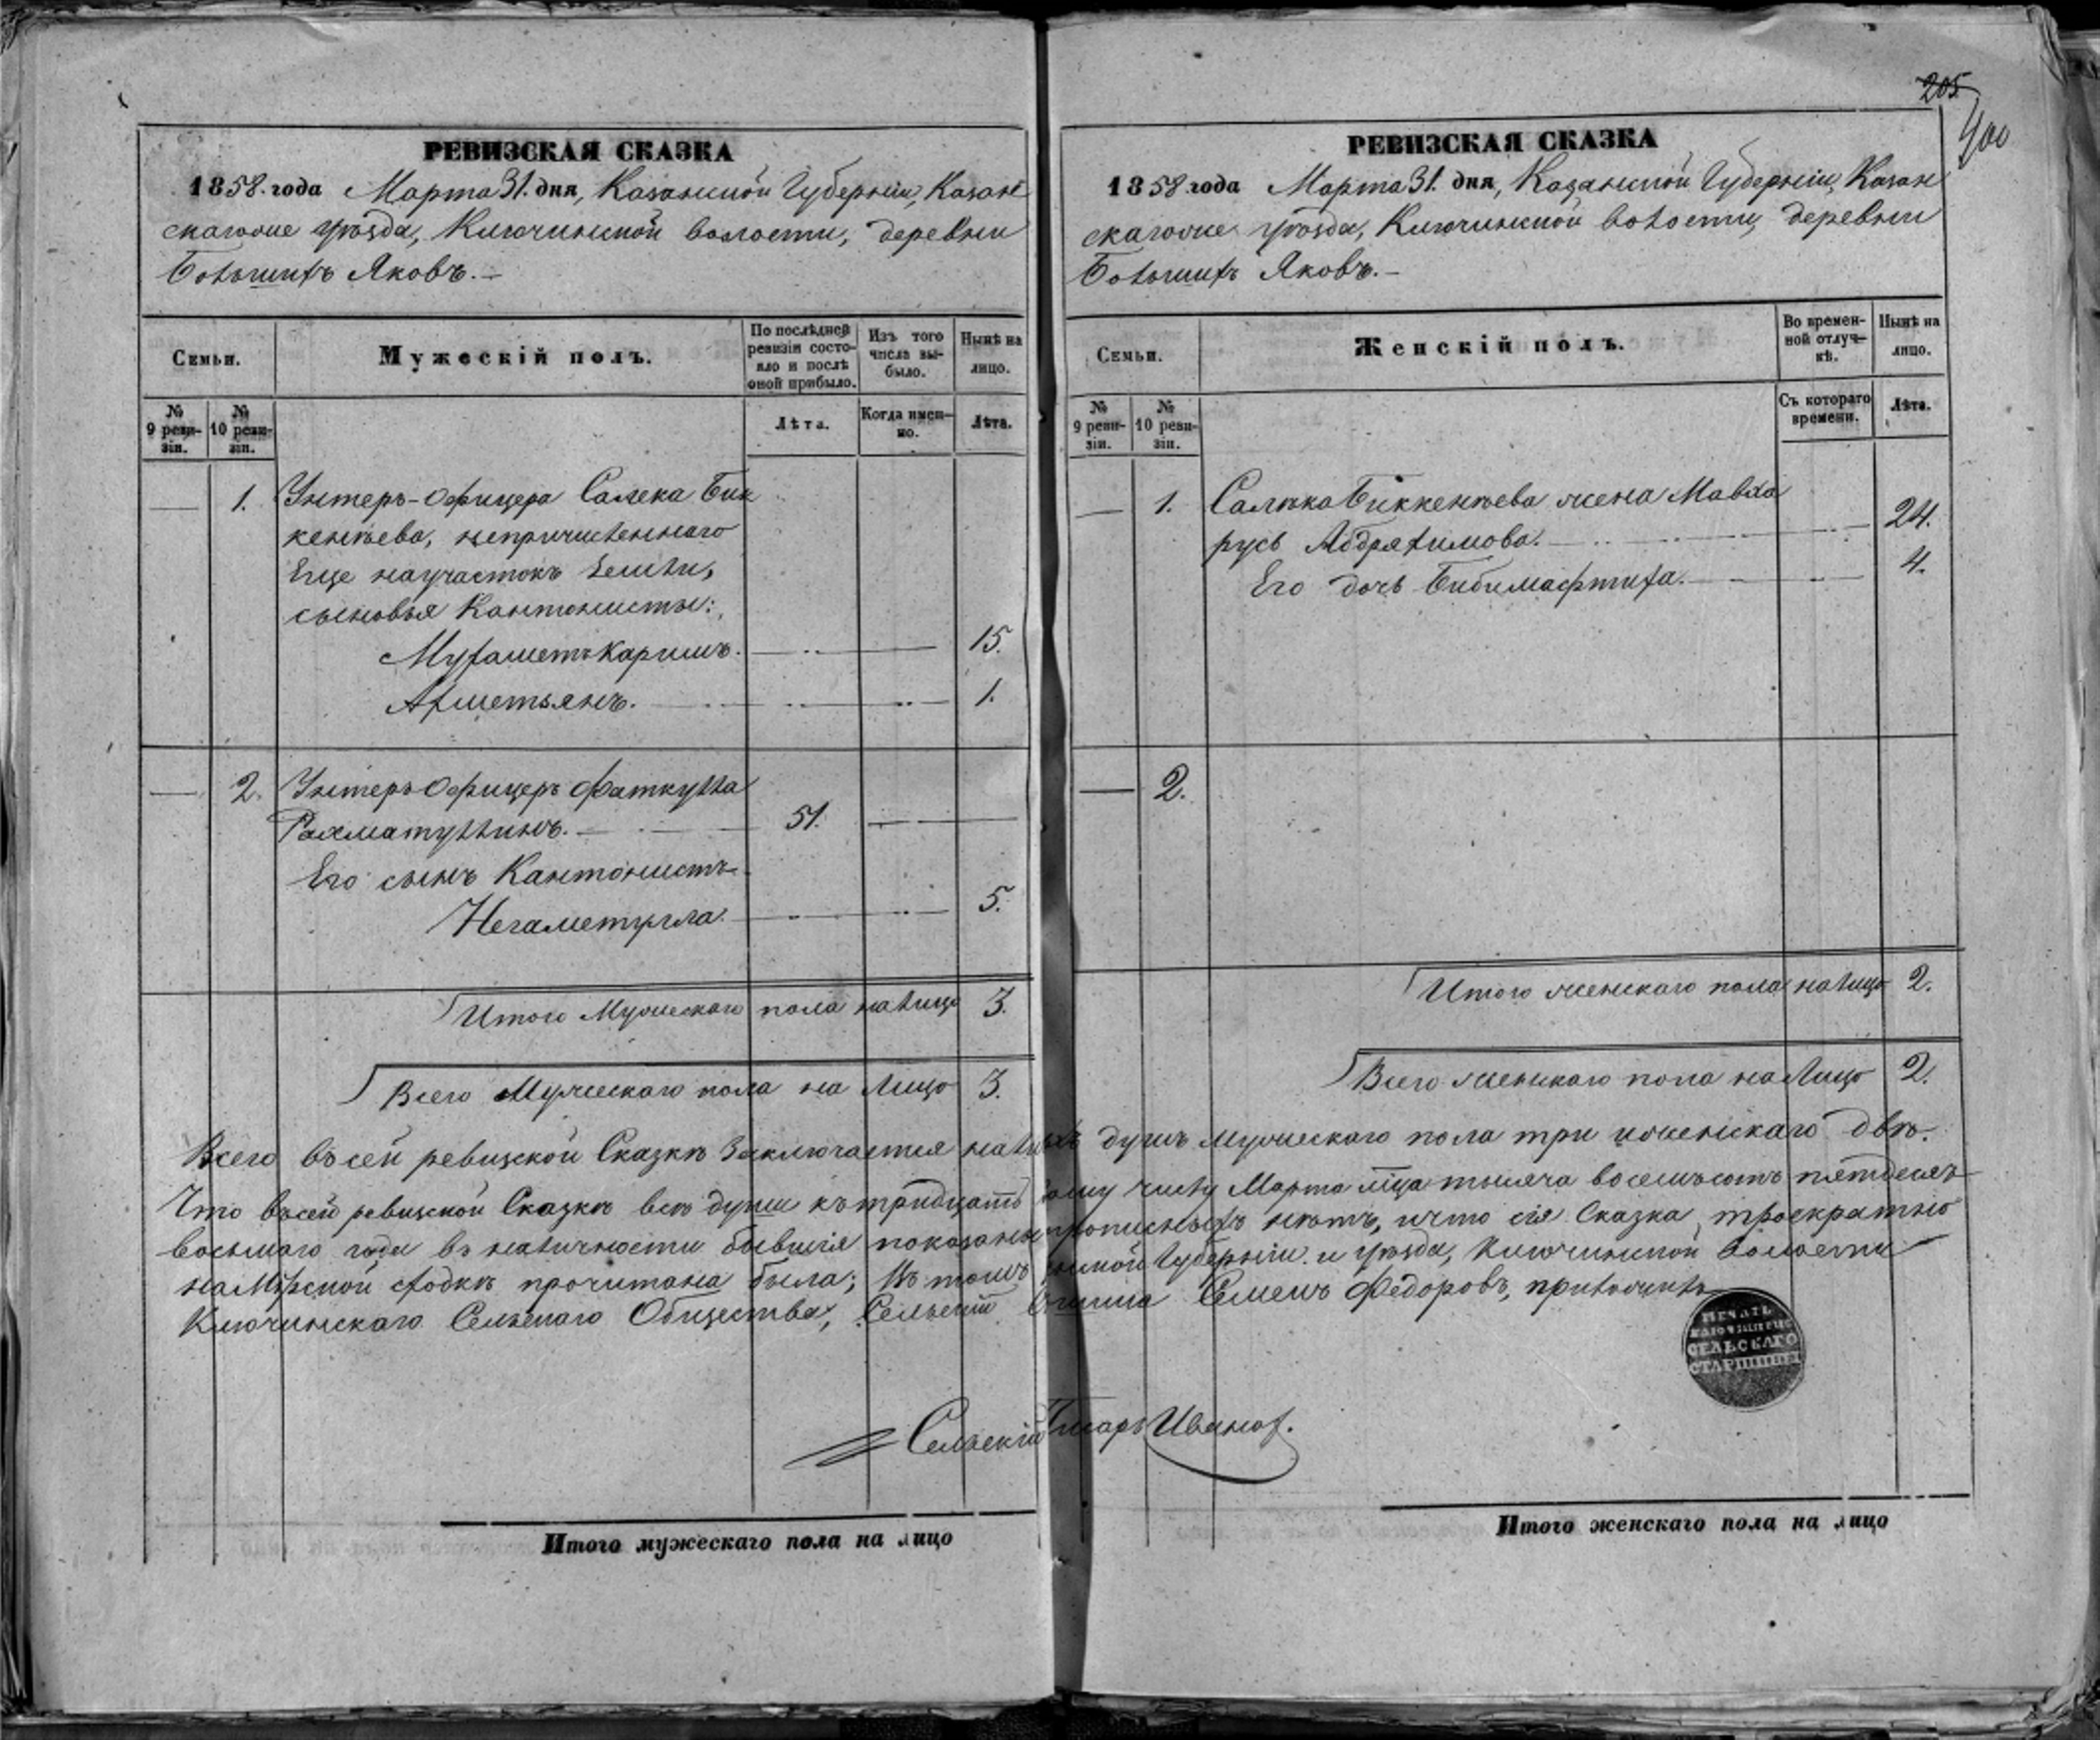 205
400
РЕВИЗСКАЯ СКАЗКА
1858 года Марта 31. дня, Казанской Губерніи, Казан
скагоже уѣзда, Ключинской волости, деревни
Большихъ Яковъ.
Семьи.
Мужескій полъ.
По послѣдней ревизіи состояло и послѣ оной прибыло.
Изъ того числа выбыло.
Нынѣ на лицо.
№ 9 ревизіи.
№ 10 ревизіи.
Лѣта.
Когда именно.
Лѣта.
1. Унтеръ-офицера Салека Бик
кенѣева, непричисленнаго
еще на участокъ земли,
сыновья Кантонисты:
Мухаметъ Каримъ. 15.
Ахметьянъ. 1.
2. Унтеръ-офицеръ Фаткулла
Рахматуллинъ. 51.
Его сынъ Кантонистъ
Негаметулла. 5.
Итого Мужескаго пола налицо 3.
Всего Мужескаго пола на лицо 3.
РЕВИЗСКАЯ СКАЗКА
1858 года Марта 31. дня, Казанской Губерніи, Казан
скагоже уѣзда, Ключинской волости, деревни
Большихъ Яковъ.
Семьи.
Женскій полъ.
Во временной отлучкѣ.
Нынѣ на лицо.
№ 9 ревизіи.
№ 10 ревизіи.
Съ котораго времени.
Лѣта.
1. Салѣка Биккенѣева жена Мавха
русь Абдряхимова. 24.
Его дочь Бибимафтиха. 4.
2.
Итого женскаго пола налицо 2.
Всего женскаго пола на лицо 2.
Всего въ сей ревизской Сказкѣ заключается налицо душъ мужескаго пола три и женскаго двѣ.
Что въ сей ревизской Сказкѣ всѣ души къ тридцать числу Марта мѣсяца тысяча восемьсотъ пятдесятъ
восьмаго года въ наличности бывшія показаны прописныхъ нѣтъ, и что сія Сказка троекратно
на Мірской сходкѣ прочитана была; въ томъ Губерніи и уѣзда, Ключинской волости
Ключинскаго Сельскаго Общества, Сельскій Семенъ Федоровъ, приложилъ
ПЕЧАТЬ
СЕЛЬСКАГО
СТАРШИНЫ
Сельскій Писарь Иванов.
Итого мужескаго пола на лицо
Итого женскаго пола на лицо